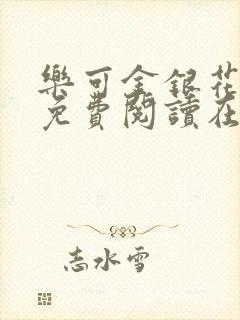 樂可金銀花
免費閱讀在
志水雪